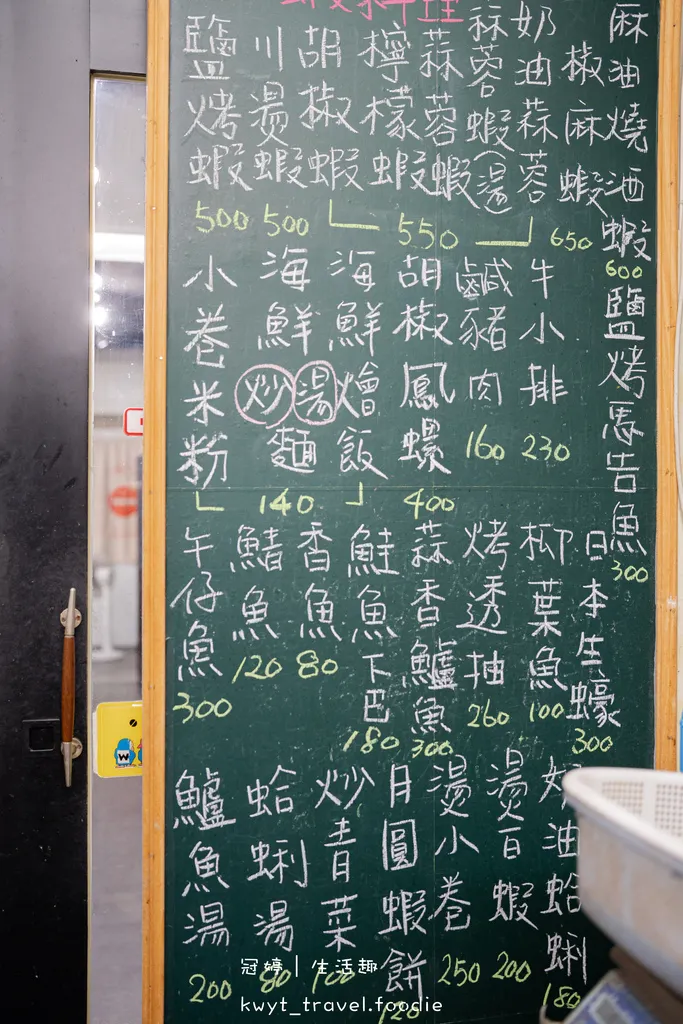 蝦料理
麻油燒酒蝦
600
椒麻蝦
650
奶油蒜蓉
蒜蓉蝦(湯)
蒜蓉蝦
檸檬蝦
胡椒蝦
550
川燙蝦
500
鹽烤蝦
500
鹽烤馬告魚
300
牛小排
230
鹹豬肉
160
胡椒鳳螺
400
海鮮燴飯
海鮮炒湯麵
140
小卷米粉
日本生蠔
300
柳葉魚
100
烤透抽
260
蒜香鱸魚
300
鮭魚下巴
180
香魚
80
鯖魚
120
午仔魚
300
奶油蛤蜊
180
燙百蝦
200
燙小卷
250
月圓蝦餅
120
炒青菜
100
蛤蜊湯
80
鱸魚湯
200
冠婷|生活趣
kwyt_travel.foodie